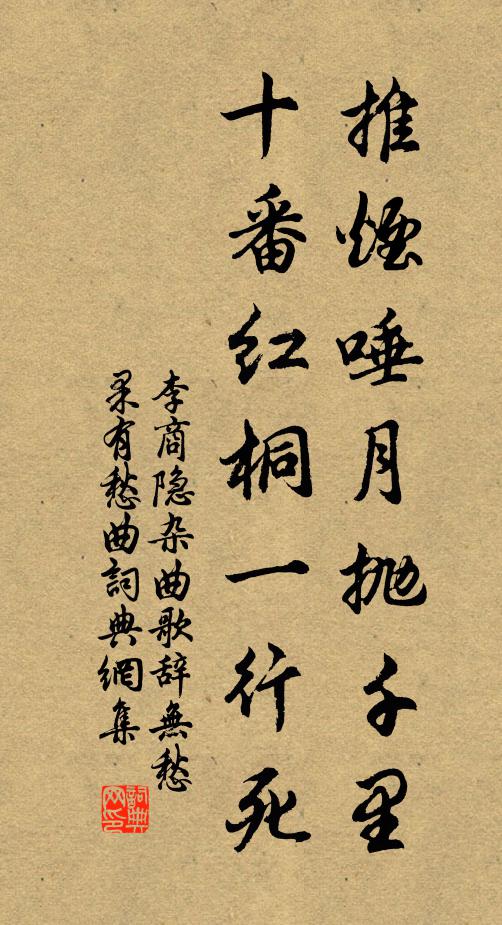 推煙唾月抛千里
十番红桐一行死
李商隐杂曲歌辞無愁
果有愁曲詞典網集
詞典
网印